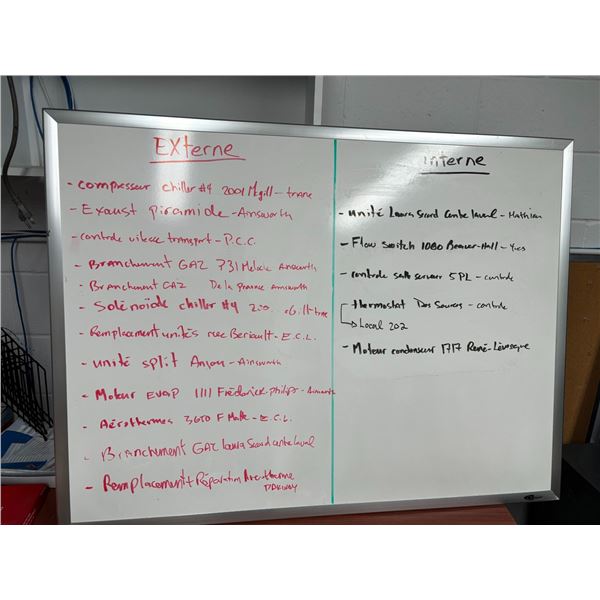 EXterne
- compresseur chiller #4 2001 Mcgill - trane
- Exaust piramide - Ainsworth
- controle vitesse transport - P.C.C.
- Branchment GAZ 731 Ainsworth
- Branchment GAZ De la Ainsworth
- Solénoïde chiller #4
- Remplacement unités Beriault - E.C.L.
- unité split Anjou - Ainsworth
- Moteur EVAP 1111 Fréderick-philips -
- Aérothermes 3600 F - E.C.L.
- Branchment GAZ Laura Secord centre laval
- Remplacement + Réparation
interne
- unité Laura Secord Centre laval -
- Flow switch 1080 Beaver-Hall - Yves
- controle salle serveur 5 PL - controle
- thermostat Des Sources - controle
Local 202
- Moteur condenseur 1717 René-Lévesque